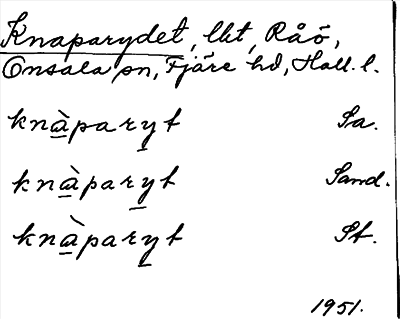 Knaparydet, lkt, Råö,
Onsala sn, Fjäre hd, Hall. l.
knàparyt Sa.
knàparyt Sand.
knàparyt St.
1951.